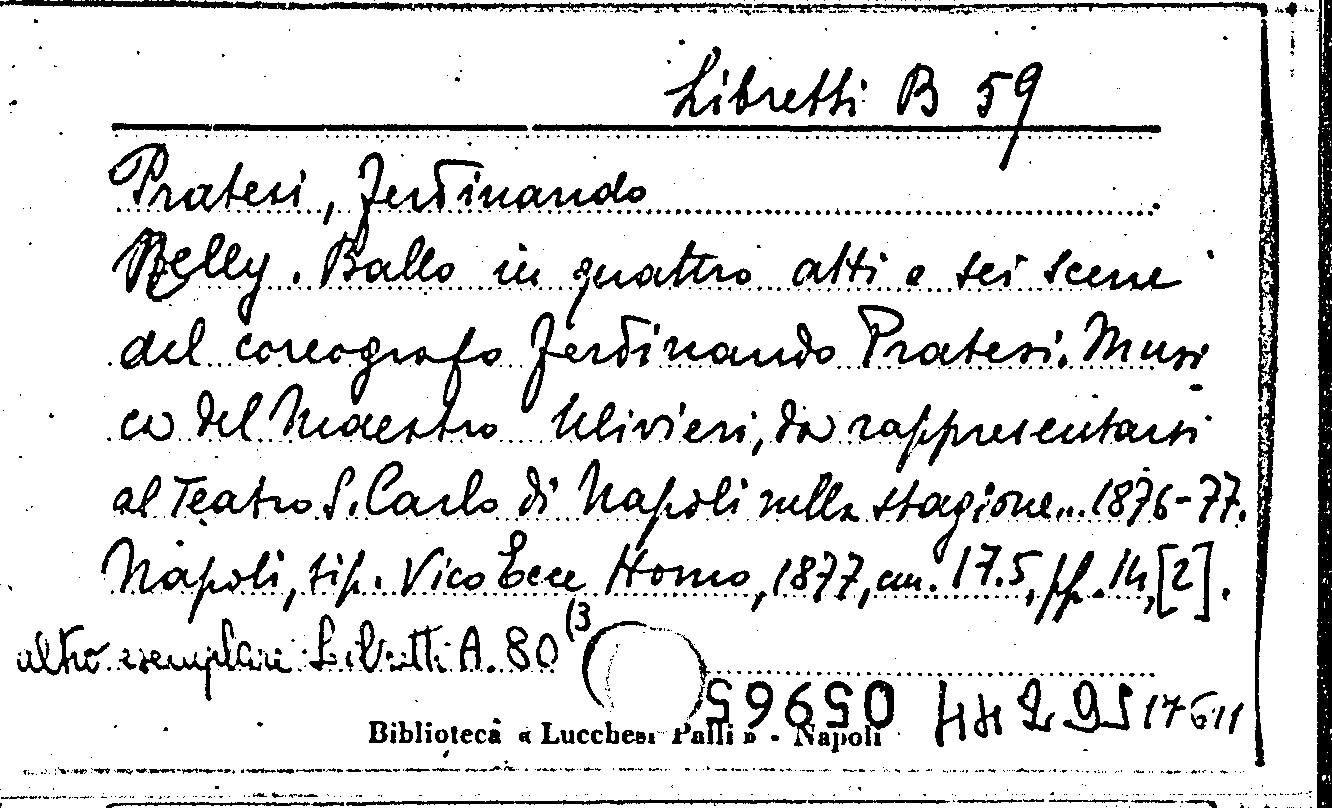 Libretti B 59
Pratesi, Ferdinando
Nelly. Ballo in quattro atti e sei scene
del coreografo Ferdinando Pratesi. Musi
ca del Maestro Ulivieri, da rappresentarsi
al Teatro S. Carlo di Napoli nella stagione... 1876-77.
Napoli, tip. Vico Ecce Homo, 1877, cm. 17.5, pp. 14, [2].
altro esemplare Libretti A. 80 (3
059965
Biblioteca « Lucchesi Palli » - Napoli